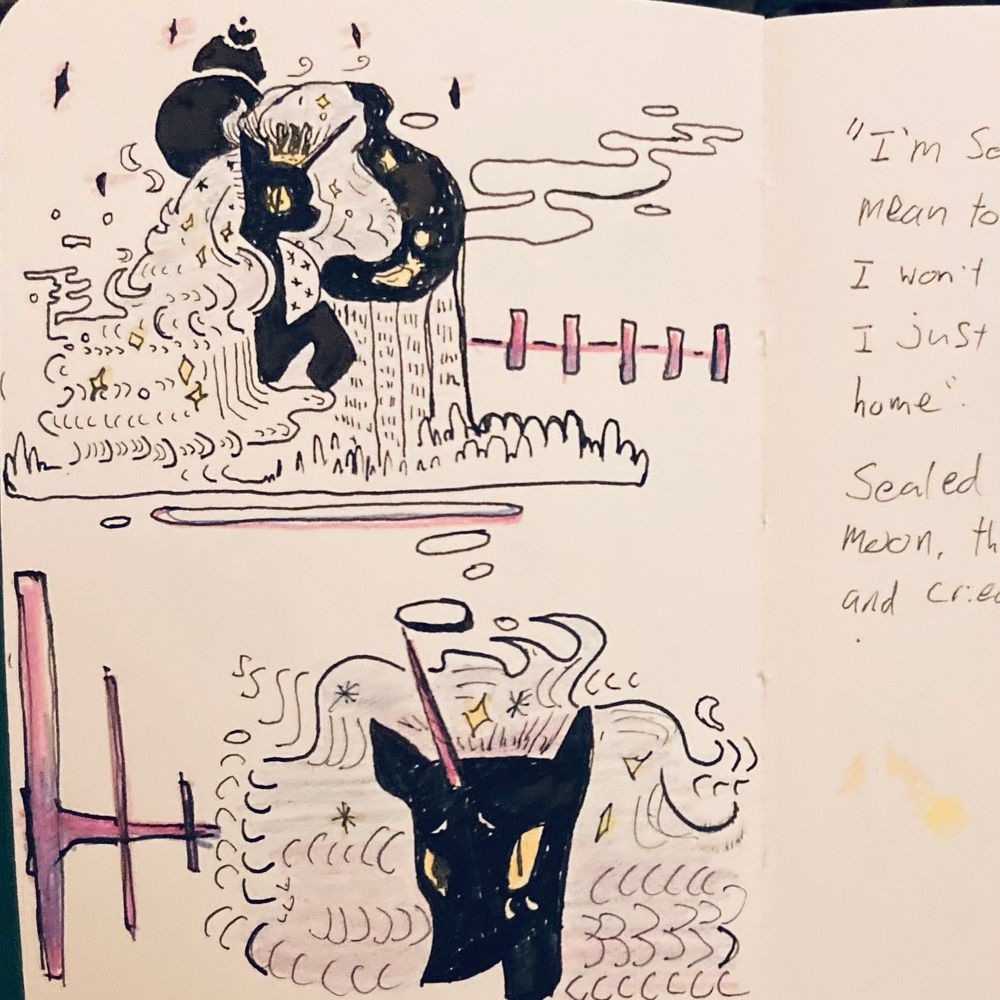 "I'm So
mean to
I won't
I just
home".
Sealed
moon, th
and cried